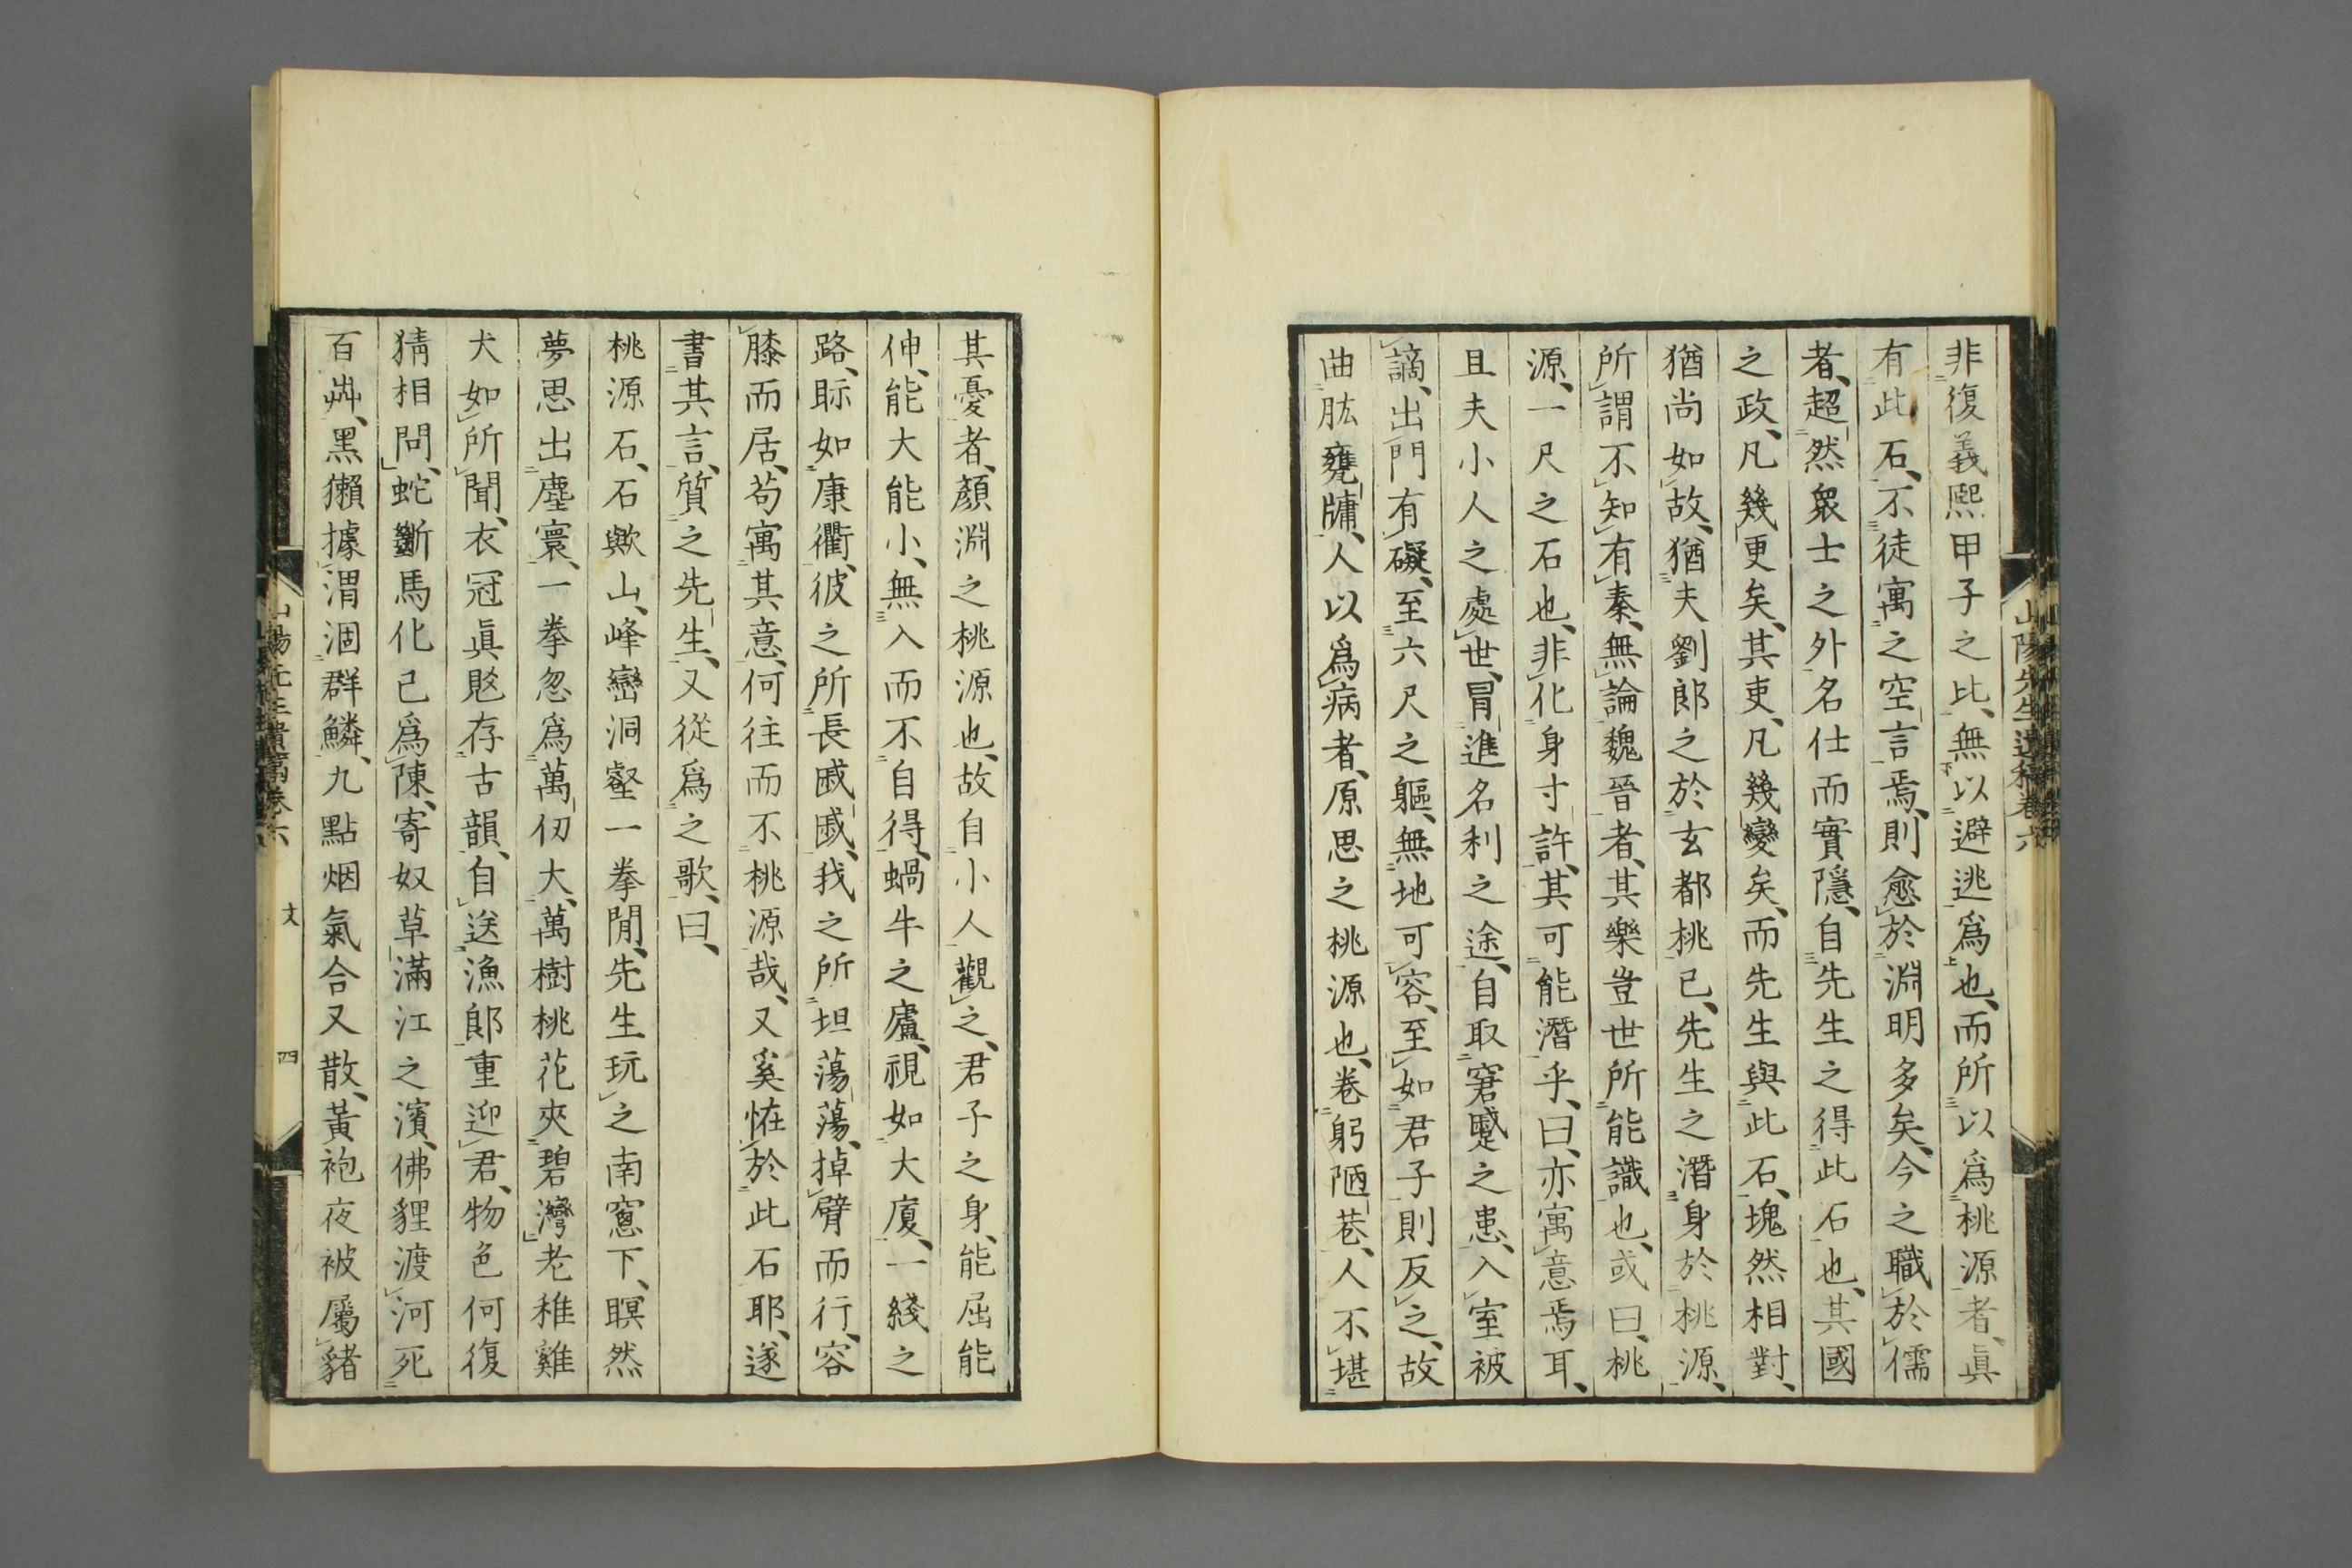 非復義熙甲子之比、無以避逃爲也、而所以爲桃源者、眞
有此石、不徒寓之空言焉、則愈於淵明多矣、今之職於儒
者、超然衆士之外、名仕而實隱、自先生之得此石也、其國
之政、凡幾更矣、其吏、凡幾變矣、而先生與此石、塊然相對、
猶尚如故、猶夫劉郎之於玄都桃已、先生之潛身於桃源、
所謂不知有秦、無論魏晉者、其樂豈世所能識也、或曰、桃
源、一尺之石也、非化身寸許、其可能潛乎、曰、亦寓意焉耳、
且夫小人之處世、冒進名利之途、自取窘蹙之患、入室被
謫、出門有礙、至六尺之軀、無地可容、至如君子則反之、故
曲肱甕牖、人以爲病者、原思之桃源也、卷躬陋巷、人不堪
其憂者、顏淵之桃源也、故自小人觀之、君子之身、能屈能
伸、能大能小、無入而不自得、蝸牛之廬、視如大廈、一綫之
路、眎如康衢、彼之所長戚戚、我之所坦蕩蕩、掉臂而行、容
膝而居、苟寓其意、何往而不桃源哉、又奚恠於此石耶、遂
書其言、質之先生、又從爲之歌、曰、
桃源石、石歟山、峰巒洞壑一拳閒、先生玩之南窻下、瞑然
夢思出塵寰、一拳忽爲萬仞大、萬樹桃花夾碧灣、老稚雞
犬如所聞、衣冠眞愍存古韻、自送漁郎重迎君、物色何復
猜相問、蛇斷馬化已爲陳、寄奴草滿江之濱、佛貍渡河死
百艸、黑獺據渭涸群鱗、九點烟氣合又散、黃袍夜被屬豬
山陽先生遺稿卷六
文
四